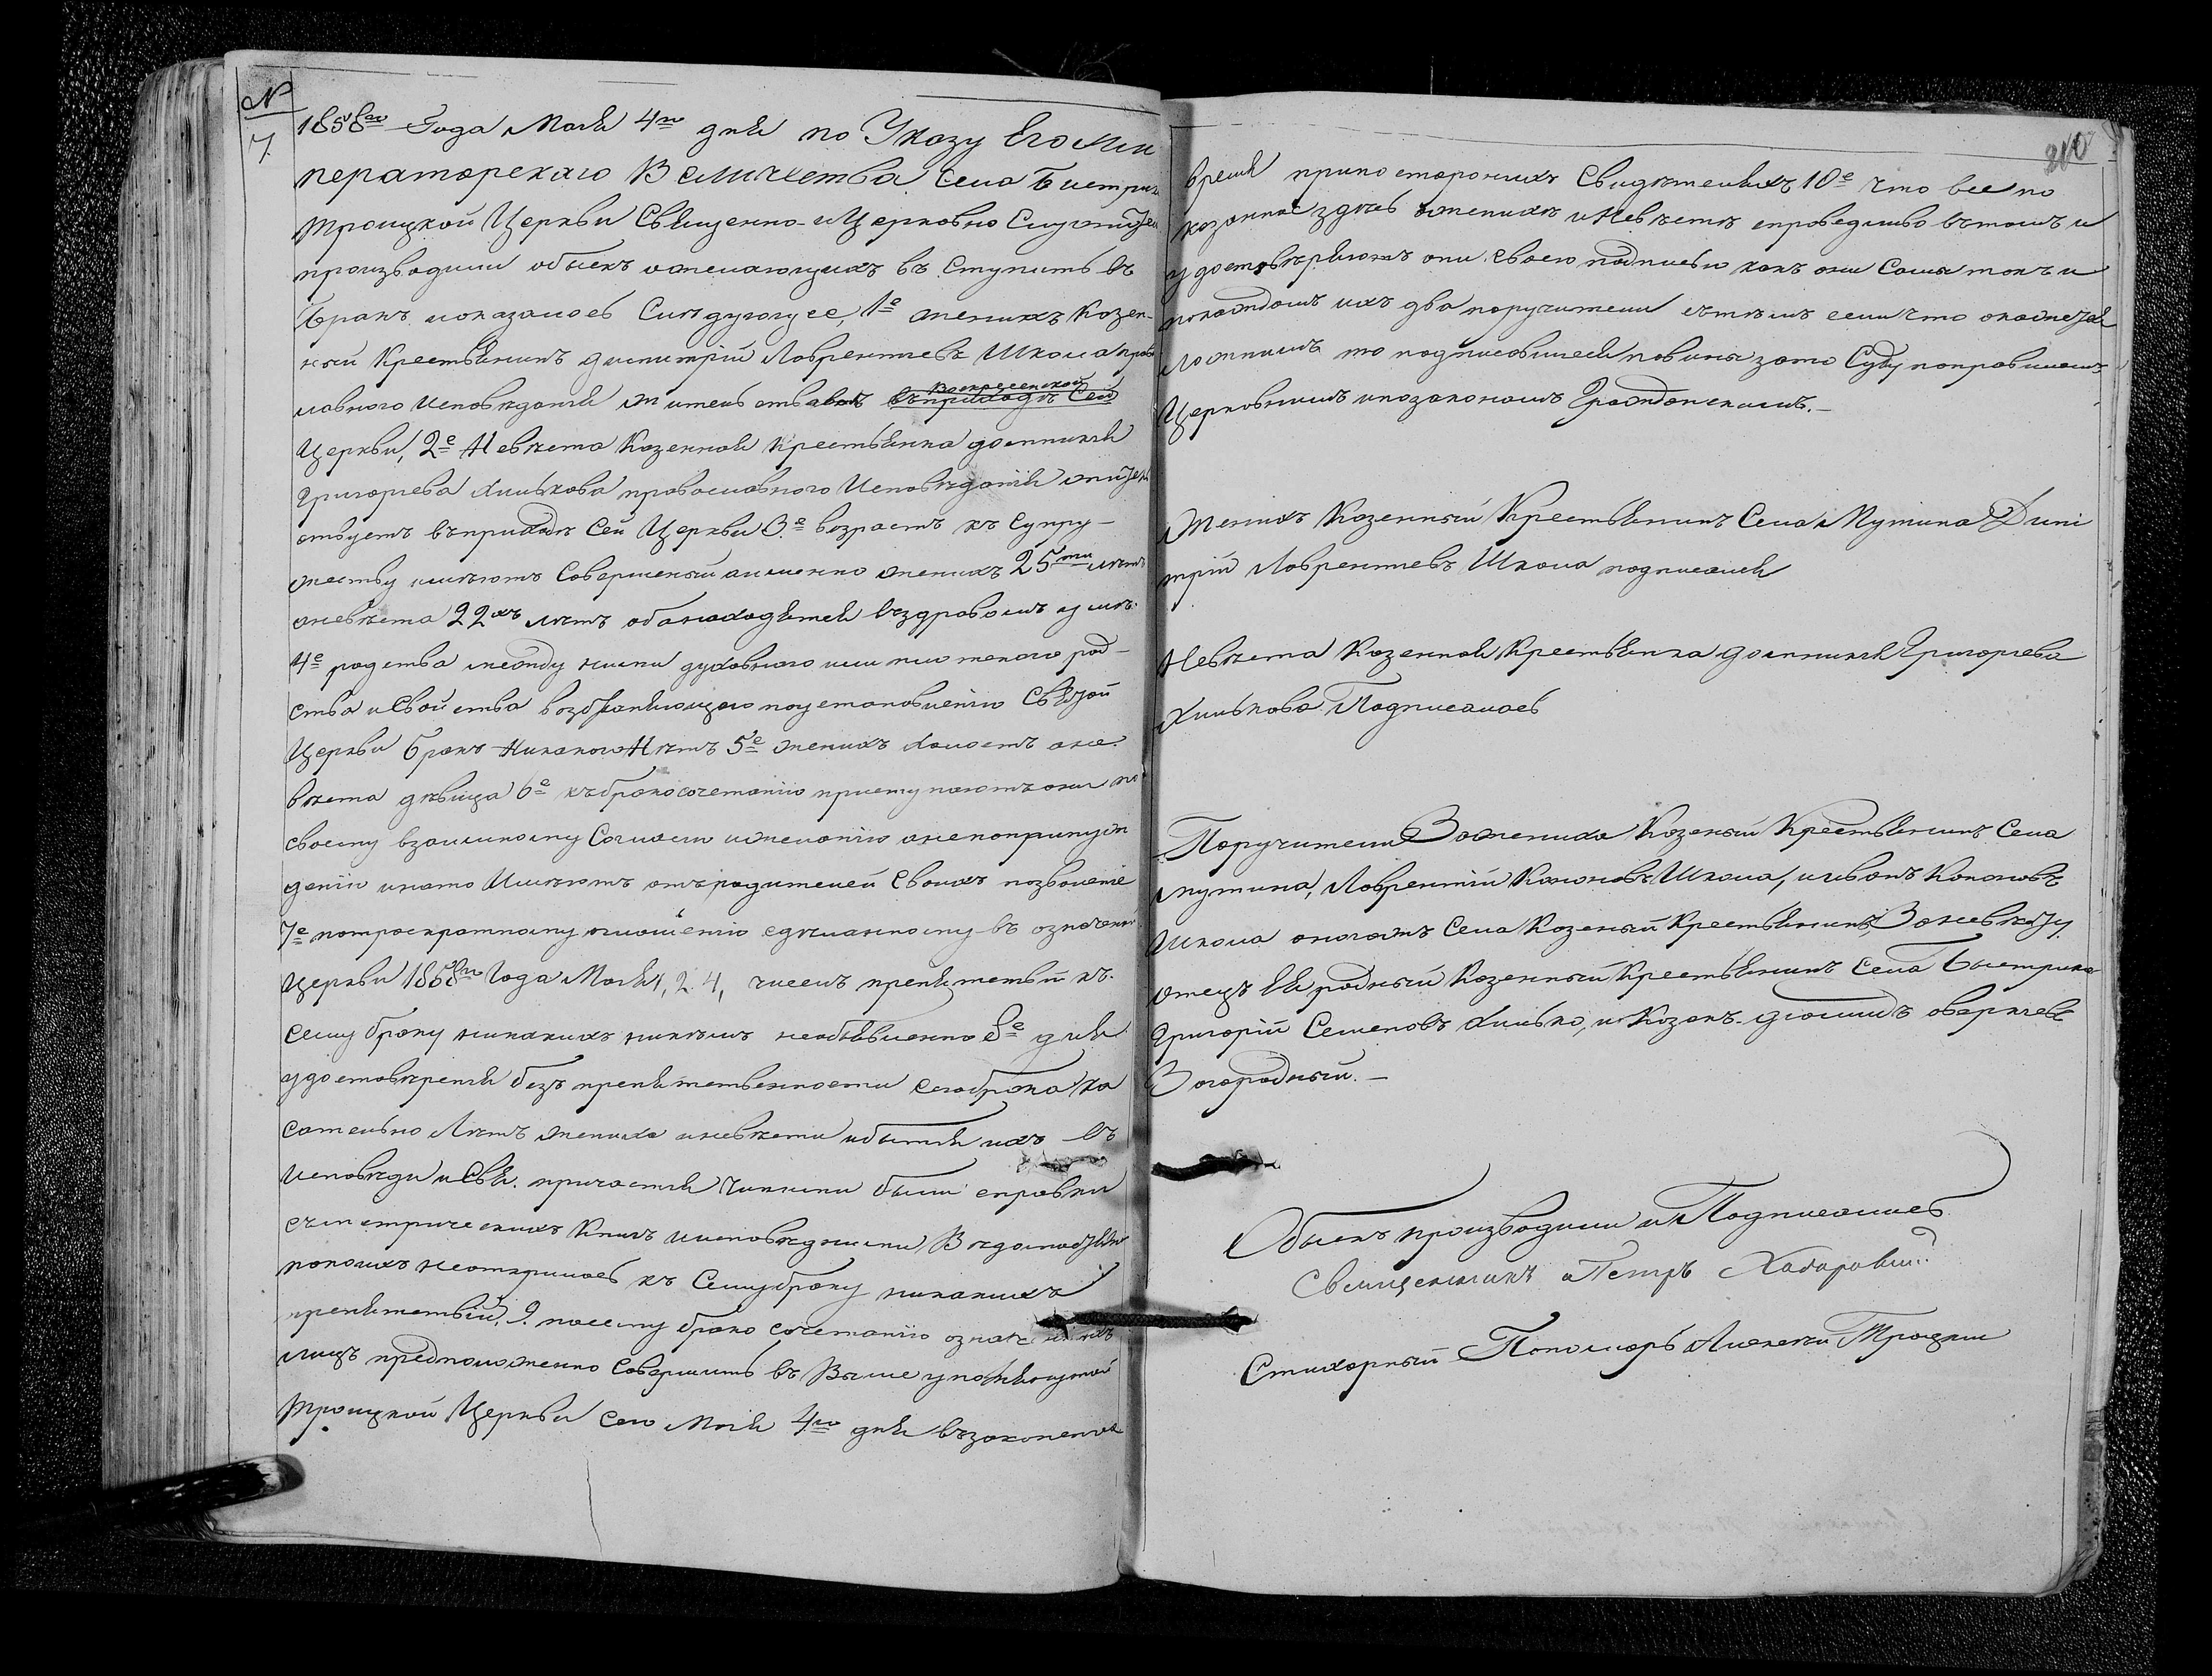 №
7.
1858го Года Маія 4го дня по Указу Его Им
ператорскаго Величества. Села Бистрик
Троицкой Церкви Священно- и Церковно Служител
производили обыскъ ожелающихъ въ ступить въ
бракъ и оказалось Слѣдующее, 1е женихъ Козен-
ной Крестьянинъ Димитрій Лаврентіевъ Школа прав
лавного Исповѣданія жительствовалъ въ приходѣ Воскресенской Сей
Церкви, 2е Невѣста Козенная Крестьянка Домникія
Григоріева Хилькова православного Исповѣданія жител
ствуетъ въприходѣ Сей Церкви 3е возрастъ къ Супру-
жеству имѣютъ Совершеный аименно женихъ 25ти лѣтъ
аневѣста 22хъ лѣтъ оба находятся въздравомъ умѣ.
4е родства между ними духовного или плотского род-
ства и Свойства возбраняющего поустановленію Святой
Церкви бракъ Никакого Нѣтъ 5е женихъ холостъ ане.
вѣста дѣвица 6е къбракосочетанію приступаютъ они по
своему взаимному Согласію ижеланію анепопринуж
денію инато Имѣютъ отъродителей Своихъ позволеніе
7е потроекратному оглашенію сдѣланному въ означенной
Церкви 1858го Года Маія 1, 2. 4, числъ препятствій къ.
сему браку никакихъ никѣмъ необъявленно 8е для
удостовѣренія безъ препятственности сегобрака ка
сательно Лѣтъ жениха иневѣсти ибытія ихъ въ
Исповѣди и Свя. причастія Чинини были справки
съметрическихъ Книгъ иисповѣдними Вѣдомостями
покоимъ неоткрилось къ Семубраку никакихъ
препятствій, 9. посему брако сочетанію означенихъ
лицъ предположенно Совершить въ Выше упомянутой
Троицкой Церкви сего Маія 4го дня въ законенное
210
время припостороннихъ Свидѣтеляхъ 10е что все по
козанное здѣсь оженихѣ иНевѣстѣ справедливо вътомъ и
удостовѣряютъ они Своею подписью какъ они Сами такъ и
покаждомъ ихъ два поручителя съ тѣмъ если что окажется
ложнимъ то подписовшиеся повинны зато Суду поправиламъ
Церковнимъ ипозаконамъ Гражданскимъ.-
Женихъ Козенный Крестьянинъ Села Мутина Дими
трій Лаврентіевъ Школа подписался
Невѣста Козенная Крестьянка Домникія Григоріева
Хилькова Подписалась
Поручители Зажениха Козеный Крестьянинъ Села
Мутина, Лаврентій Кононовъ Школа, и иванъ Кононовъ
Школа оногожъ Села Козеный Крестьянинъ, Заневѣсту
Отецъ Ея родный Козенный Крестьянинъ Села Быстрика
Григорій Семеновъ Хилько, и Козакъ Діомидъ Аверкіевъ
Загородный.-
Обыскъ производили и Подписались
Священникъ Петръ
Стихарный Пономарь Алексѣй Троцкій